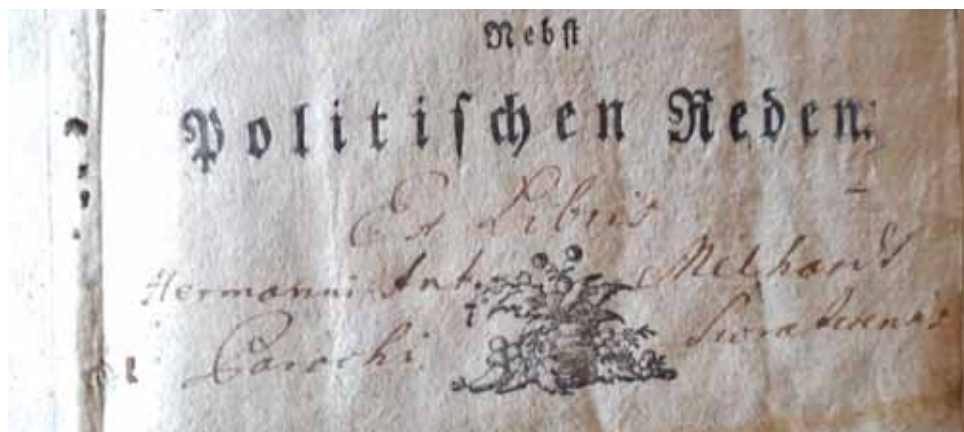 Nebst
Politischen Reden.
Ex Libris
Hermanni Ant. Melhard
Parochi